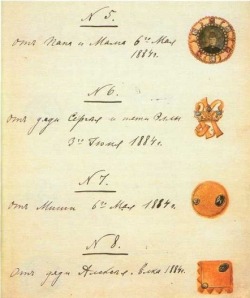 N 5.
отъ Папа и Мама 6го Мая
1884г.
N 6.
отъ дяди Сергея и тети Эллы
3го Іюня 1884г.
N 7.
отъ Миши 6го Мая 1884г.
N 8.
Отъ дяди Алексея. 1884г.